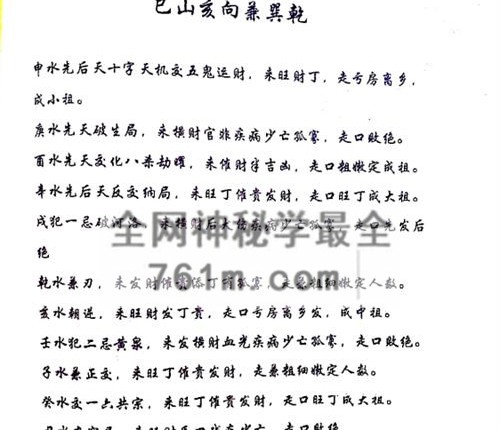 巳山亥向兼巽乾
申水先后天十字天机交五鬼运财，来旺财丁，走亏房离乡，
成小祖。
庚水先天破生局，来横财官非疾病少亡孤寡，走口败绝。
酉水先天交化八杀劫曜，来催财半吉凶，走口粗嫩定成祖。
辛水先后天反交纳局，来旺丁催贵发财，走口旺丁成大祖。
戌犯一忌破河洛，来横财后天劫疾病少亡孤寡，走口先发后
绝
乾水兼刃，来发财催贵添丁 孤寡，走兼粗细嫩定人数。
亥水朝送，来旺财发丁贵，走口亏房离乡发，成中祖。
壬水犯二忌黄泉，来发横财血光疾病少亡孤寡，走口败绝。
子水兼正交，来旺丁催贵发财，走兼粗细嫩定人数。
癸水交一六共宗，来旺丁催贵发财，走口旺丁成大祖。
全网神秘学最全
761m.com